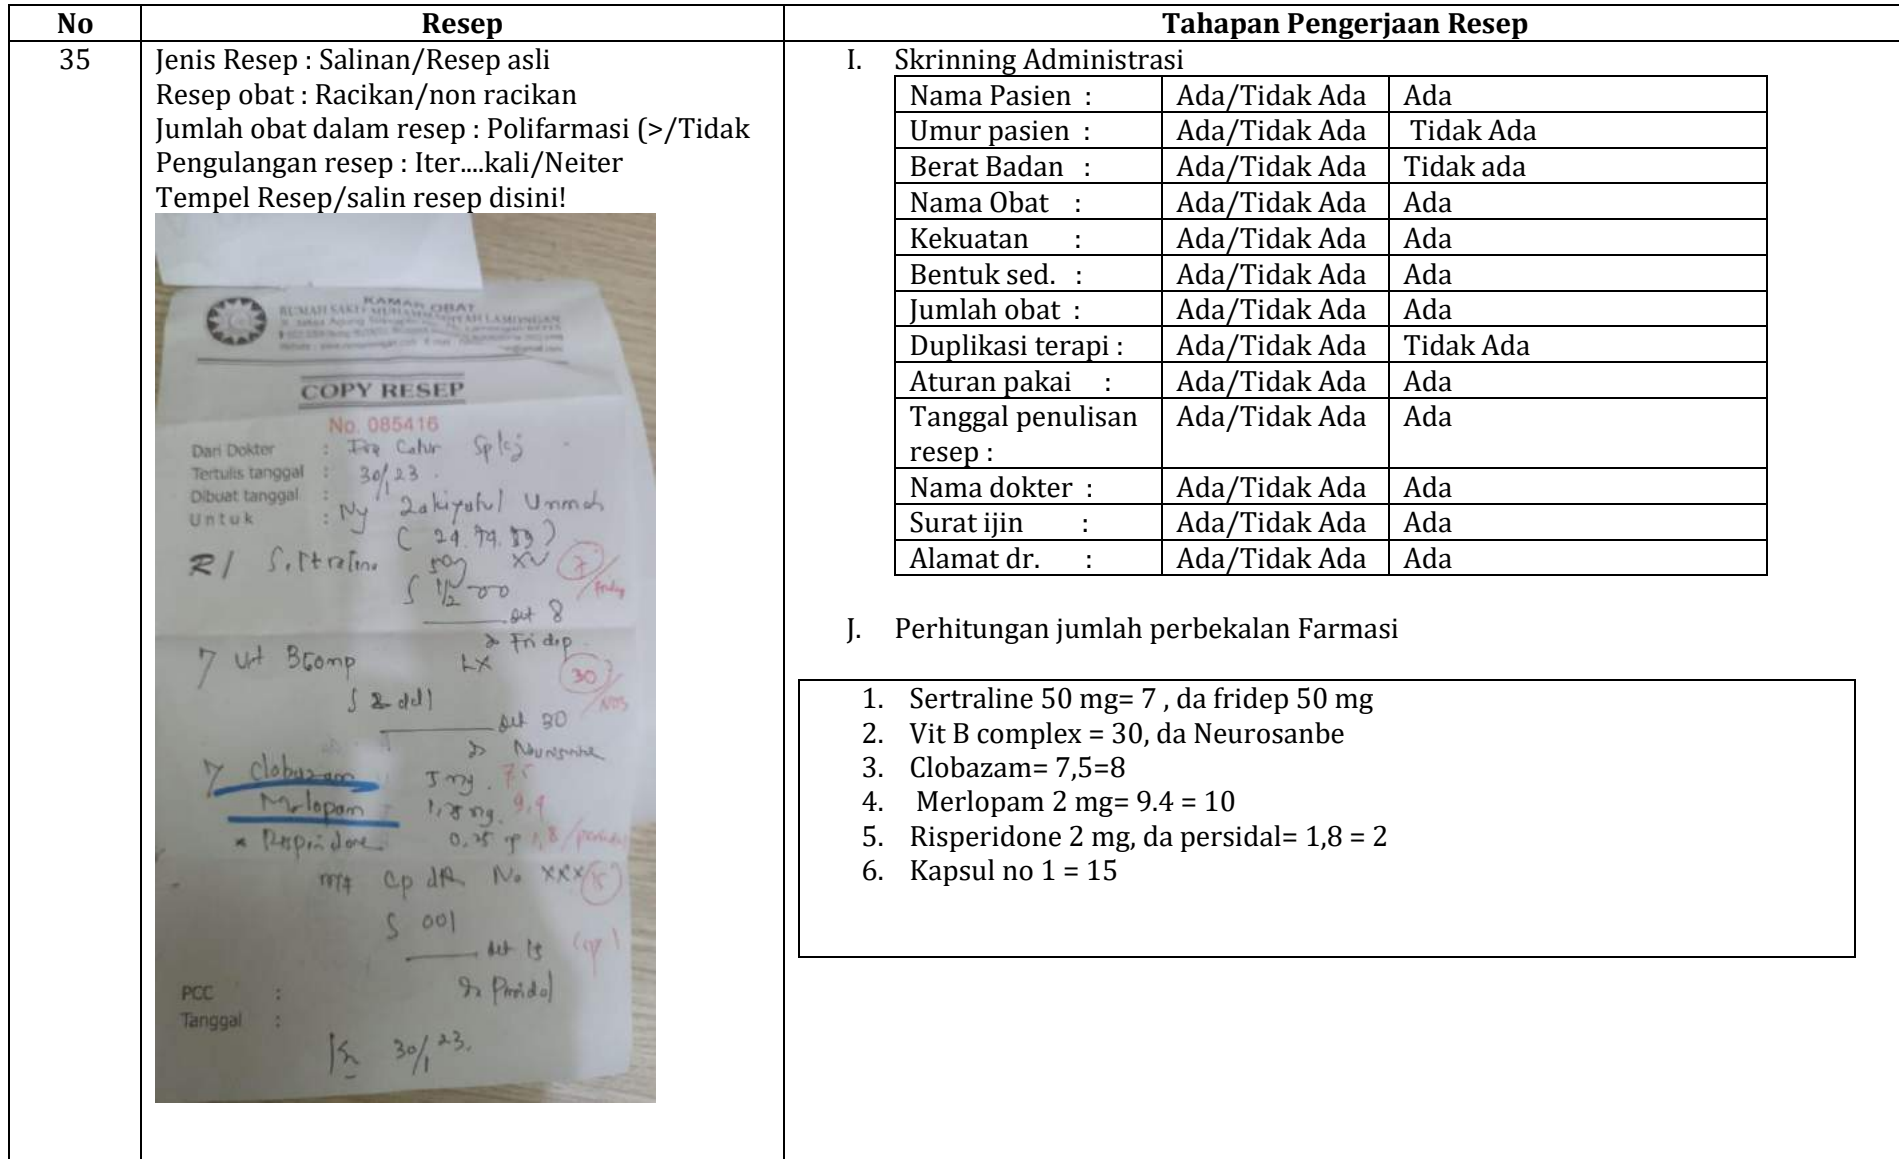 No
Resep
Tahapan Pengerjaan Resep
35
Jenis Resep : Salinan/Resep asli
Resep obat : Racikan/non racikan
Jumlah obat dalam resep : Polifarmasi (>/Tidak
Pengulangan resep : Iter....kali/Neiter
Tempel Resep/salin resep disini!
KAMAR OBAT
RUMAH SAKIT MUHAMMADIYAH LAMONGAN
COPY RESEP
No. 085416
Dari Dokter : Catur Spkj
Tertulis tanggal : 30/1 23.
Dibuat tanggal :
Untuk : Ny Zakiyatul Ummah
R/ Sertraline 50 mg XV 7
S 1/2 00
det 8
Fridep
Vit BComp LX 30
S 2 dd 1
det 30
Neurosanbe
Clobazam 5 mg. 7,5
Merlopam 9,4
Risperidone 0,25 1,8
mf cp No XXX 15
S 001
det 15
PCC :
Tanggal :
30/1 23.
I. Skrinning Administrasi
Nama Pasien : Ada/Tidak Ada Ada
Umur pasien : Ada/Tidak Ada Tidak Ada
Berat Badan : Ada/Tidak Ada Tidak ada
Nama Obat : Ada/Tidak Ada Ada
Kekuatan : Ada/Tidak Ada Ada
Bentuk sed. : Ada/Tidak Ada Ada
Jumlah obat : Ada/Tidak Ada Ada
Duplikasi terapi : Ada/Tidak Ada Tidak Ada
Aturan pakai : Ada/Tidak Ada Ada
Tanggal penulisan Ada/Tidak Ada Ada
resep :
Nama dokter : Ada/Tidak Ada Ada
Surat ijin : Ada/Tidak Ada Ada
Alamat dr. : Ada/Tidak Ada Ada
J. Perhitungan jumlah perbekalan Farmasi
1. Sertraline 50 mg= 7 , da fridep 50 mg
2. Vit B complex = 30, da Neurosanbe
3. Clobazam= 7,5=8
4. Merlopam 2 mg= 9.4 = 10
5. Risperidone 2 mg, da persidal= 1,8 = 2
6. Kapsul no 1 = 15